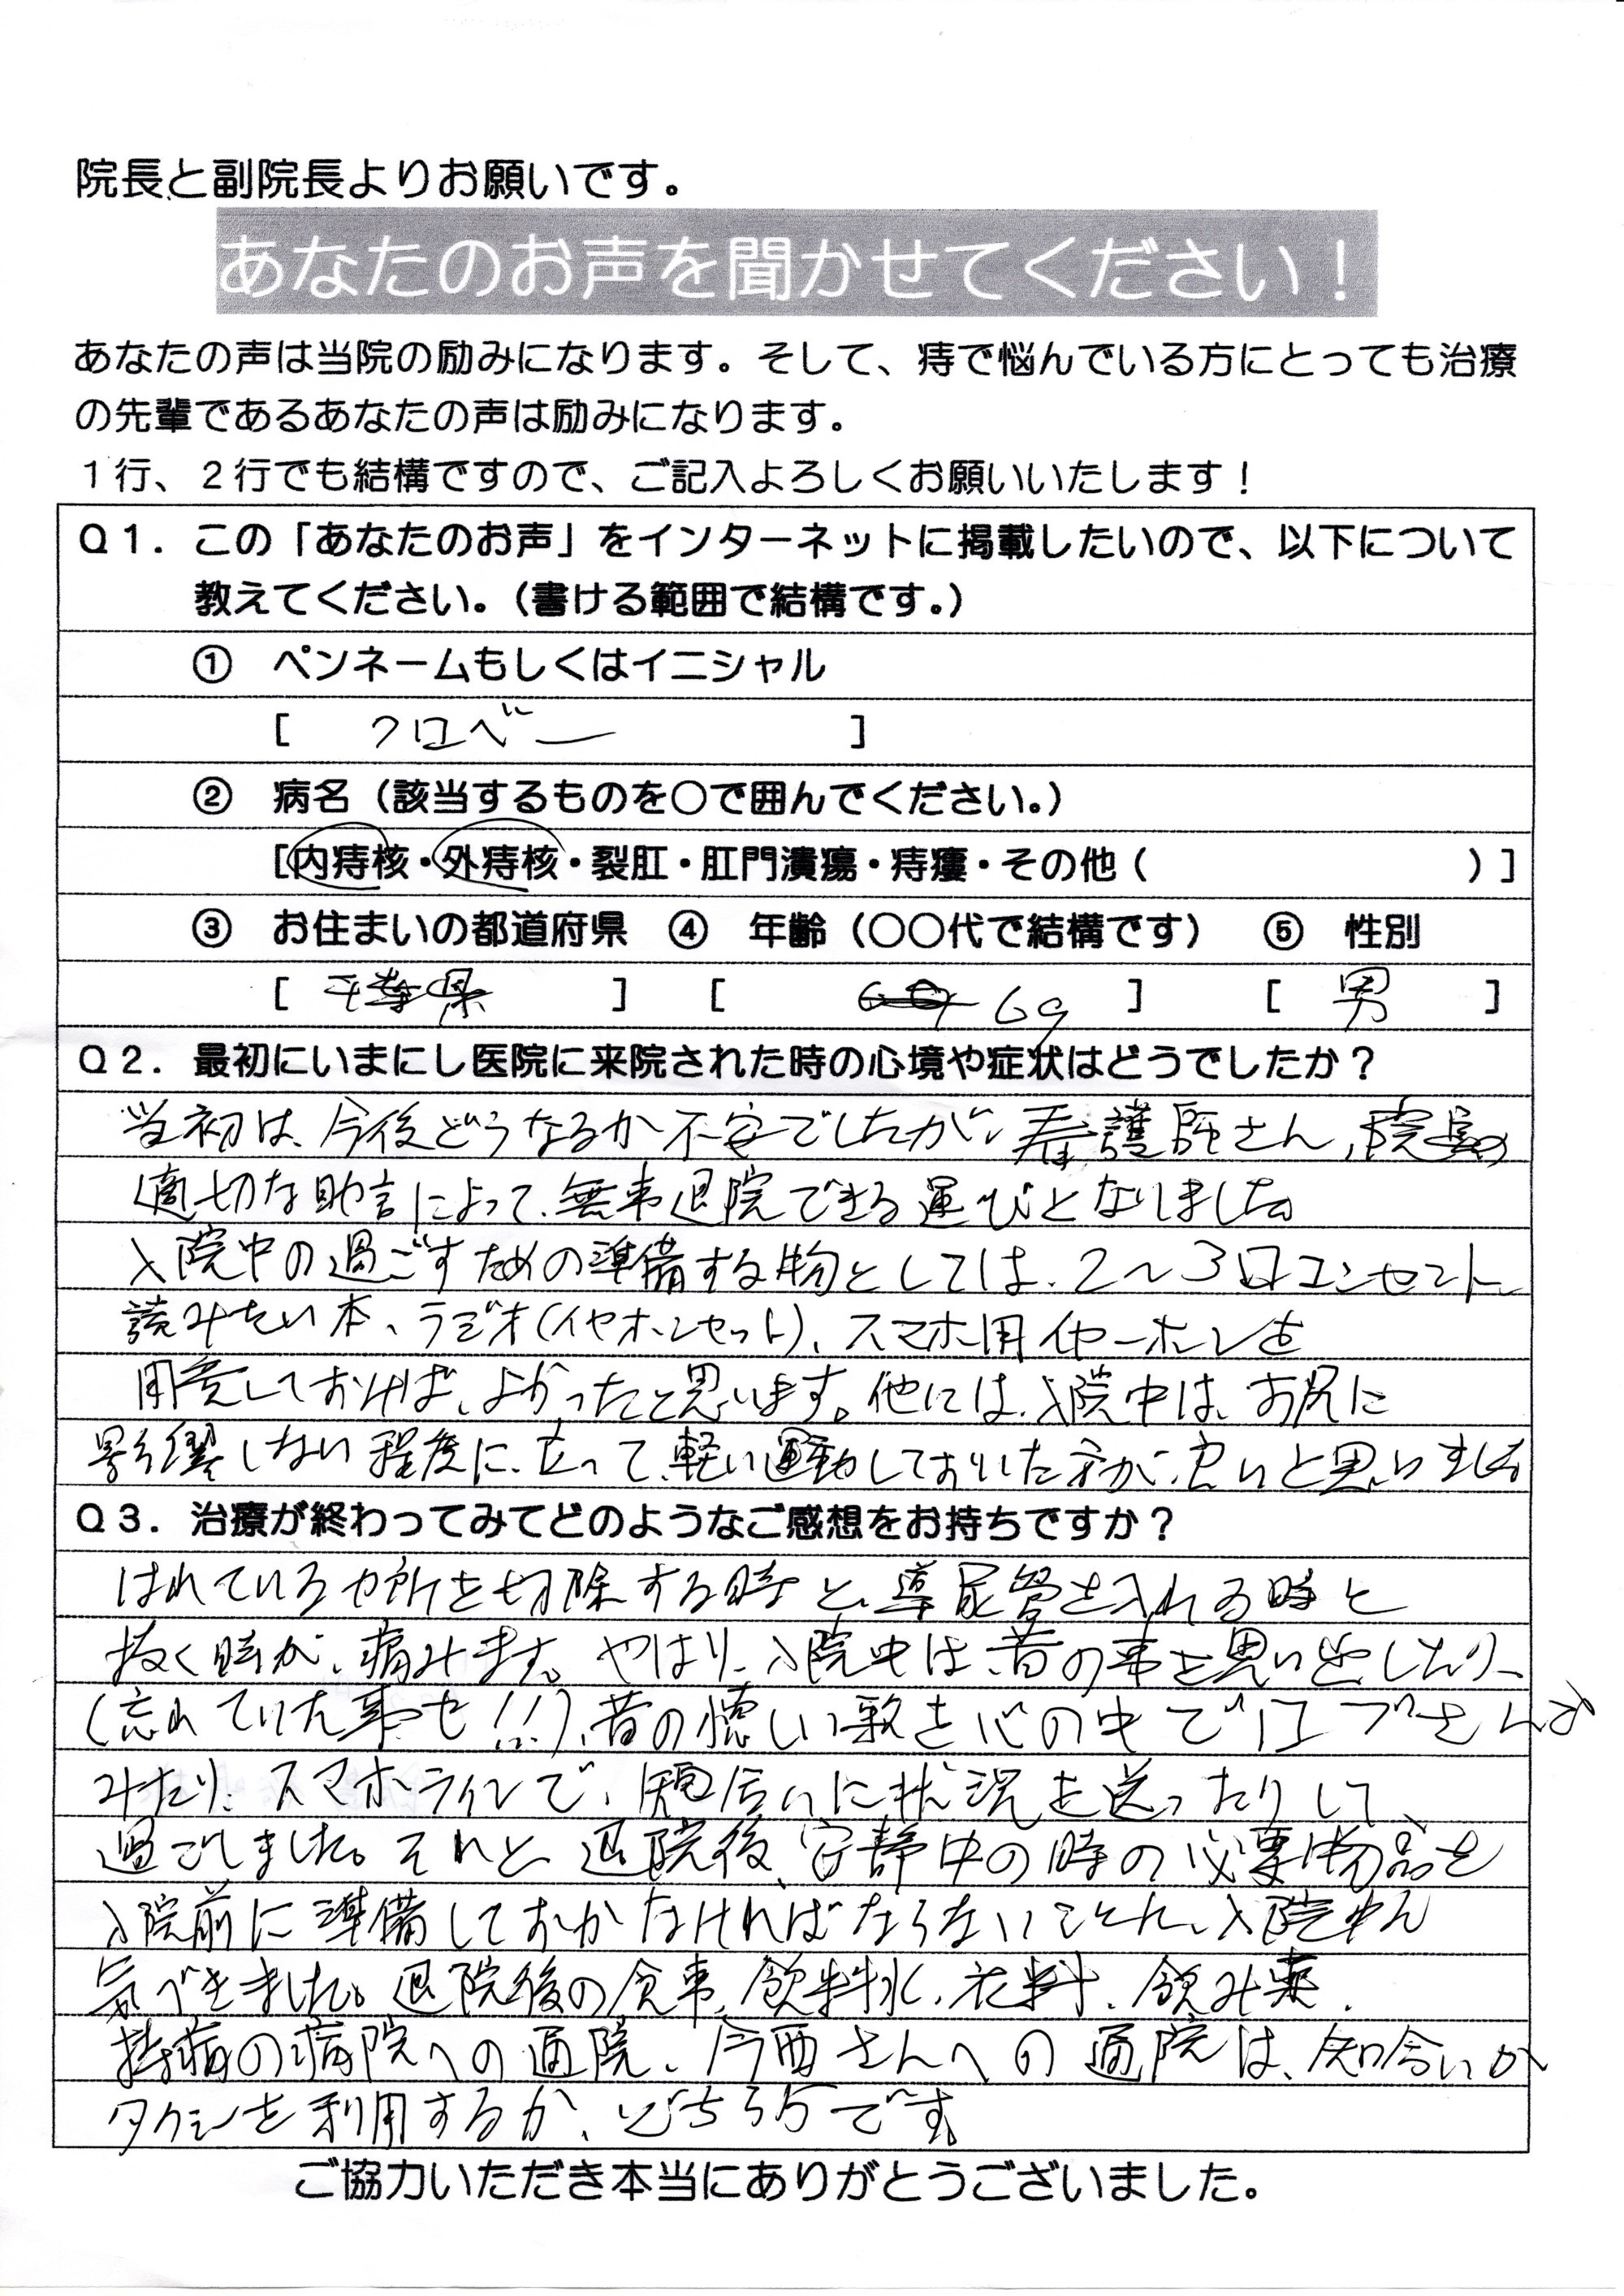 院長と副院長よりお願いです。
あなたのお声を聞かせてください！
あなたの声は当院の励みになります。そして、痔で悩んでいる方にとっても治療
の先輩であるあなたの声は励みになります。
１行、２行でも結構ですので、ご記入よろしくお願いいたします！
Ｑ１．この「あなたのお声」をインターネットに掲載したいので、以下について
教えてください。（書ける範囲で結構です。）
① ペンネームもしくはイニシャル
[ クロベー ]
② 病名（該当するものを○で囲んでください。）
[内痔核・外痔核・裂肛・肛門潰瘍・痔瘻・その他（ ）]
③ お住まいの都道府県 ④ 年齢（○○代で結構です） ⑤ 性別
[ 千葉県 ] [ 69 ] [ 男 ]
Ｑ２．最初にいまにし医院に来院された時の心境や症状はどうでしたか？
当初は、今後どうなるか不安でしたが、看護師さん、院長の
適切な助言によって、無事退院できる運びとなりました。
入院中の過ごすための準備する物としては、２～３口コンセント、
読みたい本、ラジオ（イヤホンセット）、スマホ用イヤーホンを
用意しておけば、よかったと思います。他には、入院中は、お尻に
影響しない程度に、立って、軽い運動しておいた方が、良いと思いました
Ｑ３．治療が終わってみてどのようなご感想をお持ちですか？
はれているカ所を切除する時と、導尿管を入れる時と
抜く時が、痛みます。やはり、入院中は、昔の事を思い出したり、
（忘れていた事も！！）、昔の懐しい歌を心の中で口
みたり、スマホラインで、に状況を送ったりして、
過ごしました。それと、退院後、安静中の時の必要物品を
入院前に準備しておかなければならないこと、入院中
気づきました。退院後の食事、飲料水、衣料、飲み薬、
持病の病院への通院、今西さんへの通院は、知合いか
タクシーを利用するか、どちらかです。
ご協力いただき本当にありがとうございました。